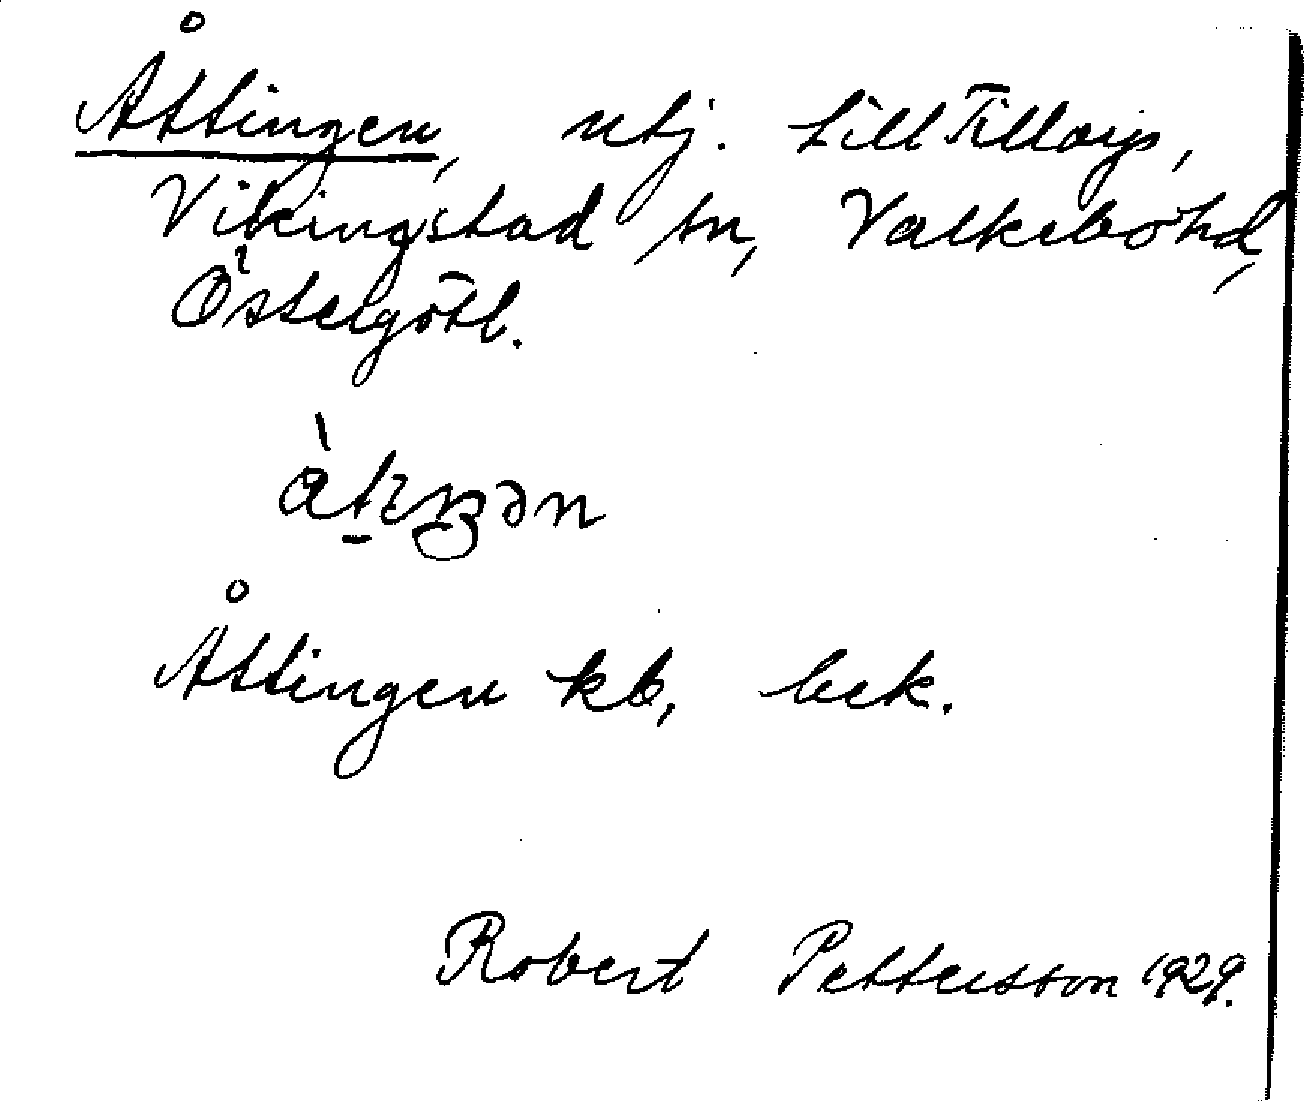 Åttingen, utj. till Tillorp,
Vikingstad sn, Valkebo hd,
Östergötl.
Åttingen kb, bek.
Robert Pettersson 1929.